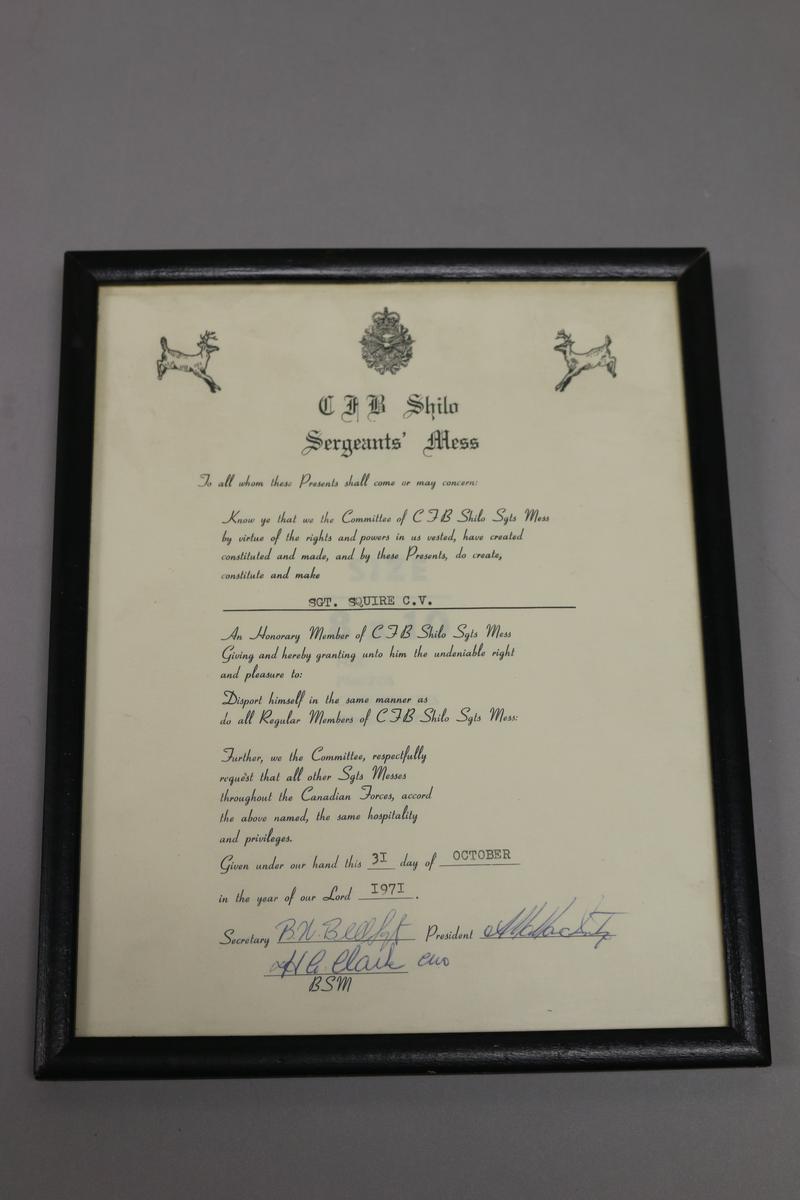 CFB Shilo
Sergeants' Mess
To all whom these Presents shall come or may concern:
Know ye that we the Committee of CFB Shilo Sgts Mess
by virtue of the rights and powers in us vested, have created
constituted and made, and by these Presents, do create,
constitute and make
SGT. SQUIRE C.V.
An Honorary Member of CFB Shilo Sgts Mess
Giving and hereby granting unto him the undeniable right
and pleasure to:
Disport himself in the same manner as
do all Regular Members of CFB Shilo Sgts Mess:
Further, we the Committee, respectfully
request that all other Sgts Messes
throughout the Canadian Forces, accord
the above named, the same hospitality
and privileges.
Given under our hand this 31 day of OCTOBER
in the year of our Lord 1971.
Secretary Sgt President
Clark CWO
BSM
SIZE